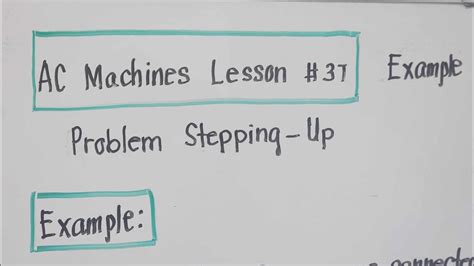 AC Machines Lesson #37 Example
Problem Stepping-Up
Example:
connected